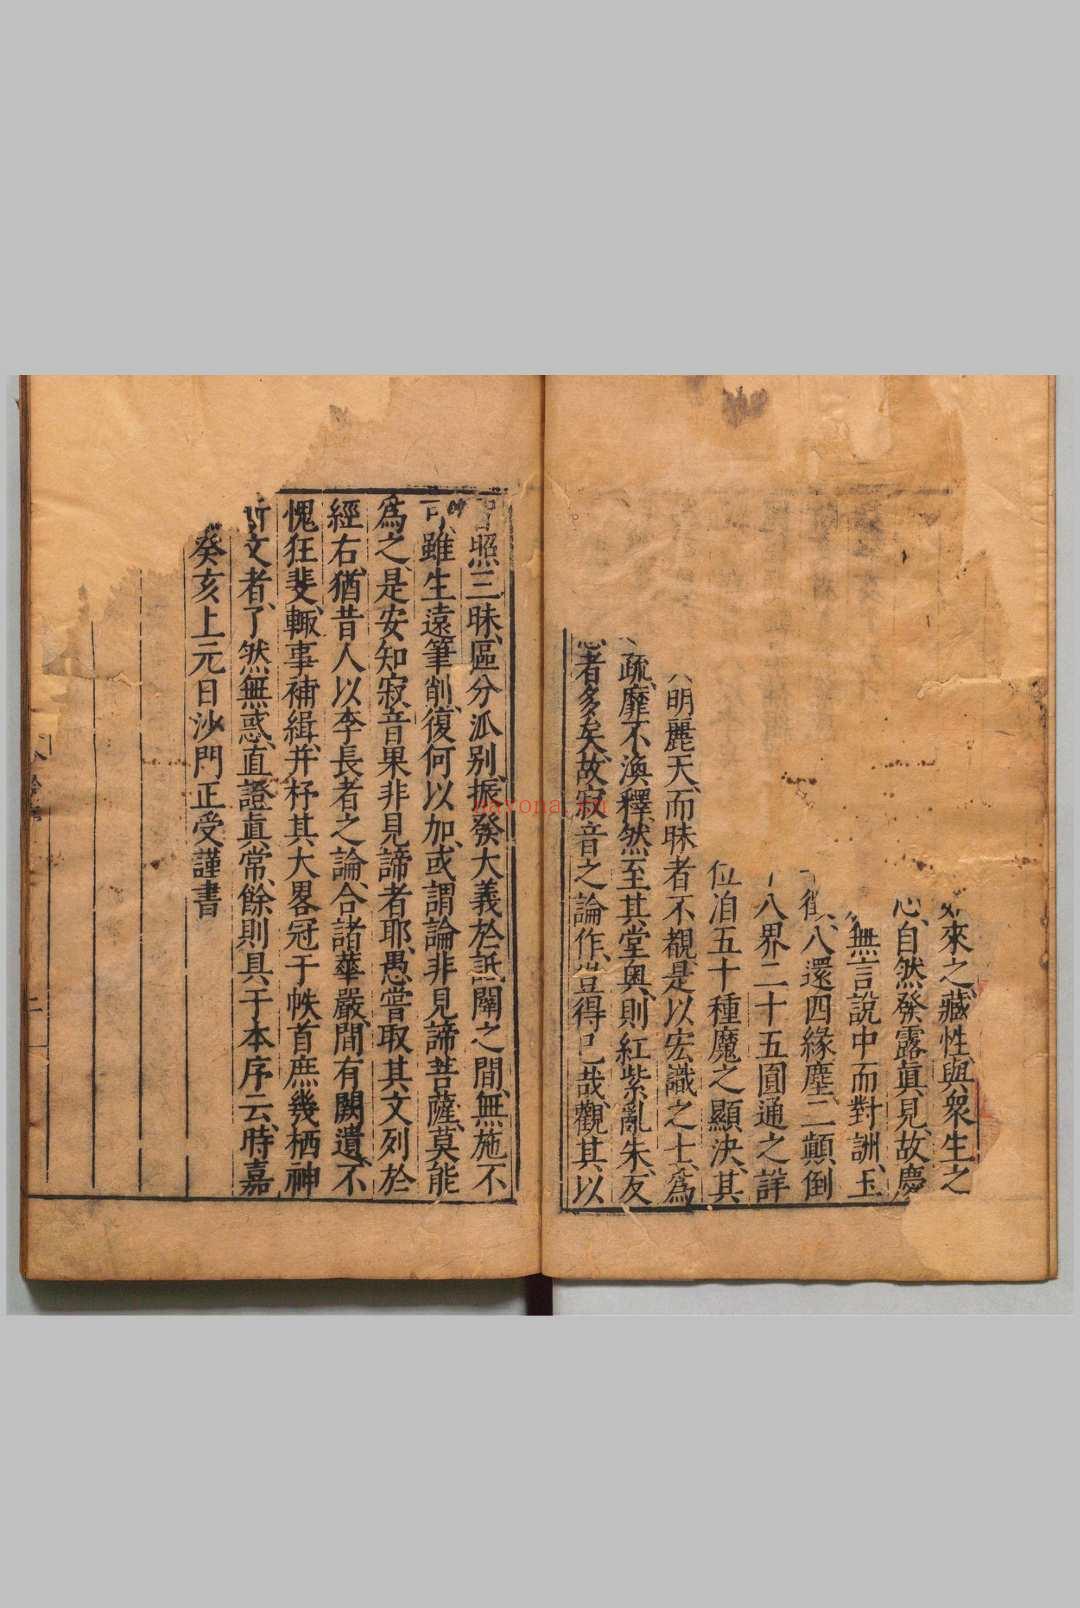 來之藏性與衆生之
心、自然發露真見、故慶
無言說中而對訓、玉
徵、八還四緣塵二顛倒
八界二十五圓通之詳
位洎五十種魔之顯決、其
明麗天、而昧者不覩、是以宏識之士、爲
疏、靡不渙釋、然至其堂奧、則紅紫亂朱、友
者多矣、故寂音之論作、豈得已哉、觀其以
照三昧、區分派別、振發大義於詆闡之間、無施不
可、雖生遠筆削、復何以加、或謂論非見諦菩薩、莫能
爲之、是安知寂音果非見諦者耶、愚嘗取其文列於
經右、猶昔人以李長者之論、合諸華嚴、間有闕遺、不
愧狂斐、輙事補緝、并杼其大畧冠于帙首、庶幾栖神
斯文者、了然無惑、直證眞常、餘則具于本序云、時嘉
癸亥上元日沙門正受謹書
二